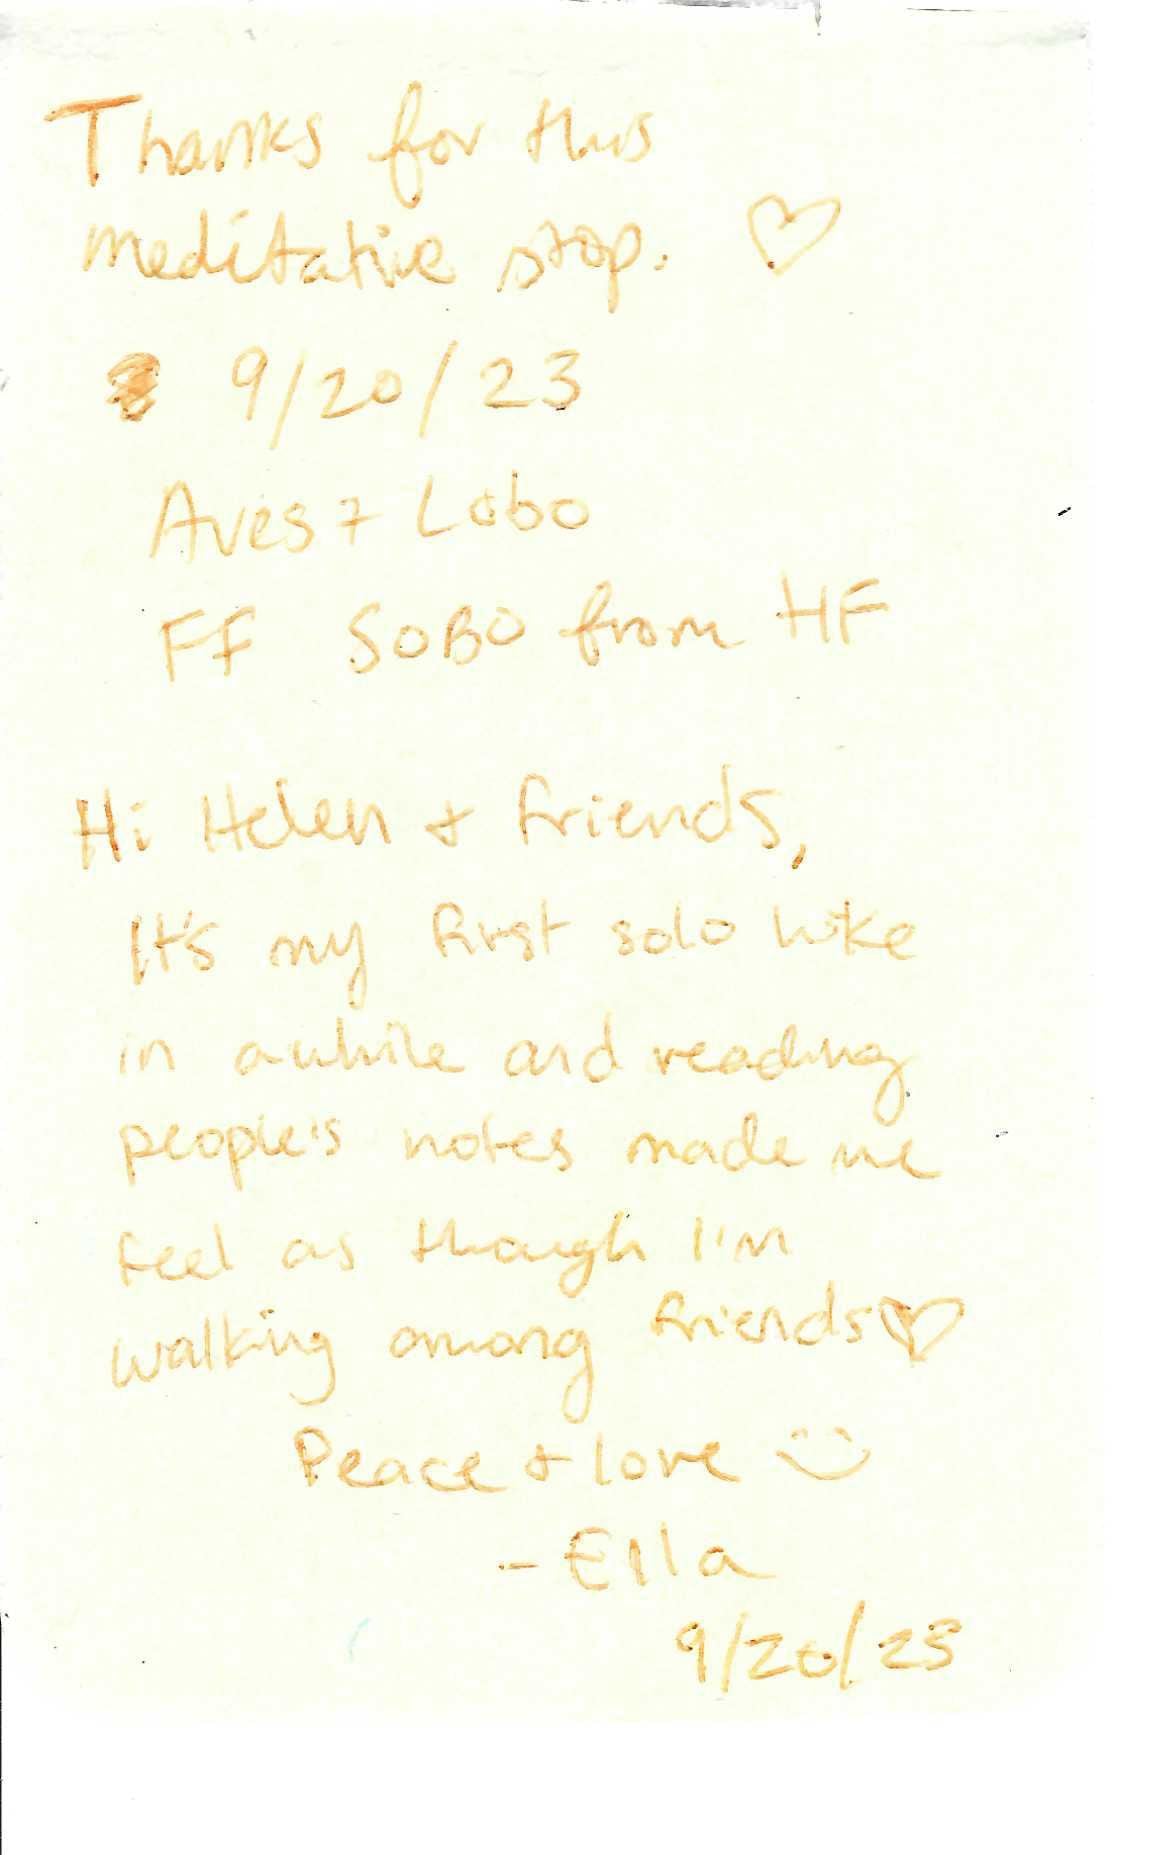 Thanks for this
meditative stop. ♡
9/20/23
Aves + Lobo
FF SOBO from HF
Hi Helen + friends,
It's my first solo hike
in awhile and reading
people's notes made me
feel as though I'm
walking among friends♡
Peace + love
- Ella
9/20/23